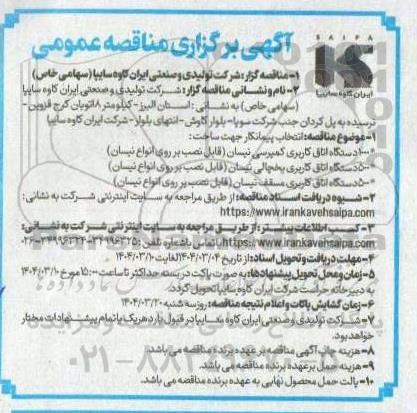 آگهی برگزاری مناقصه عمومی
SAIPA
ایران کاوه سایپا
۱- مناقصه گزار: شرکت تولیدی و صنعتی ایران کاوه سایپا (سهامی خاص)
۲- نام و نشانی مناقصه گزار: شرکت تولیدی و صنعتی ایران کاوه سایپا
(سهامی خاص) به نشانی: استان البرز - کیلومتر ۸ اتوبان کرج قزوین -
نرسیده به پل کردان جنب شرکت سوپا - بلوار کاوش - انتهای بلوار - شرکت ایران کاوه سایپا
۱- موضوع مناقصه: انتخاب پیمانکار جهت ساخت:
*۱۰۰۰ دستگاه اتاق کاربری کمپرسی نیسان (قابل نصب بر روی انواع نیسان)
*۵۰۰ دستگاه اتاق کاربری یخچالی نیسان (قابل نصب بر روی انواع نیسان)
*۵۰۰ دستگاه اتاق کاربری مسقف نیسان (قابل نصب بر روی انواع نیسان)
۲- شیوه دریافت اسناد مناقصه: از طریق مراجعه به سایت اینترنتی شرکت به نشانی:
https://www.irankavehsaipa.com
۳- کسب اطلاعات بیشتر: از طریق مراجعه به سایت اینترنتی شرکت به نشانی:
https://www.irankavehsaipa.com یا تماس با شماره تلفن: ۳۴۹۹۶۳۲۵-۳۴۹۹۶۳۲۴-۰۲۶
۴- مهلت دریافت و تحویل اسناد: از تاریخ ۱۴۰۴/۰۳/۰۴ لغایت ۱۴۰۴/۰۳/۱۰
۵- زمان و محل تحویل پیشنهادها: به صورت پاکت دربسته حداکثر تا ساعت ۱۵:۰۰ مورخ ۱۴۰۴/۰۳/۱۰
به دبیرخانه حراست شرکت ایران کاوه سایپا تحویل گردد.
۶- زمان گشایش پاکات و اعلام نتیجه مناقصه: روز سه شنبه ۱۴۰۴/۰۳/۲۰
۷- شرکت تولیدی و صنعتی ایران کاوه سایپا در قبول یا رد هر یک یا تمام پیشنهادات مختار
خواهد بود.
۸- هزینه چاپ آگهی مناقصه بر عهده برنده مناقصه می باشد.
۹- هزینه حمل بر عهده برنده مناقصه می باشد.
۱۰- پالت حمل محصول نهایی به عهده برنده مناقصه می باشد.